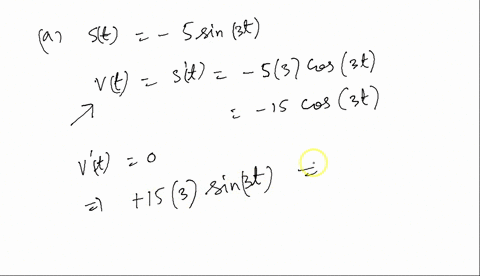 (a) s(t) = - 5 sin (3t)
v(t) = s'(t) = -5(3) cos (3t)
= -15 cos (3t)
v'(t) = 0
⇒ +15 (3) sin(3t) =